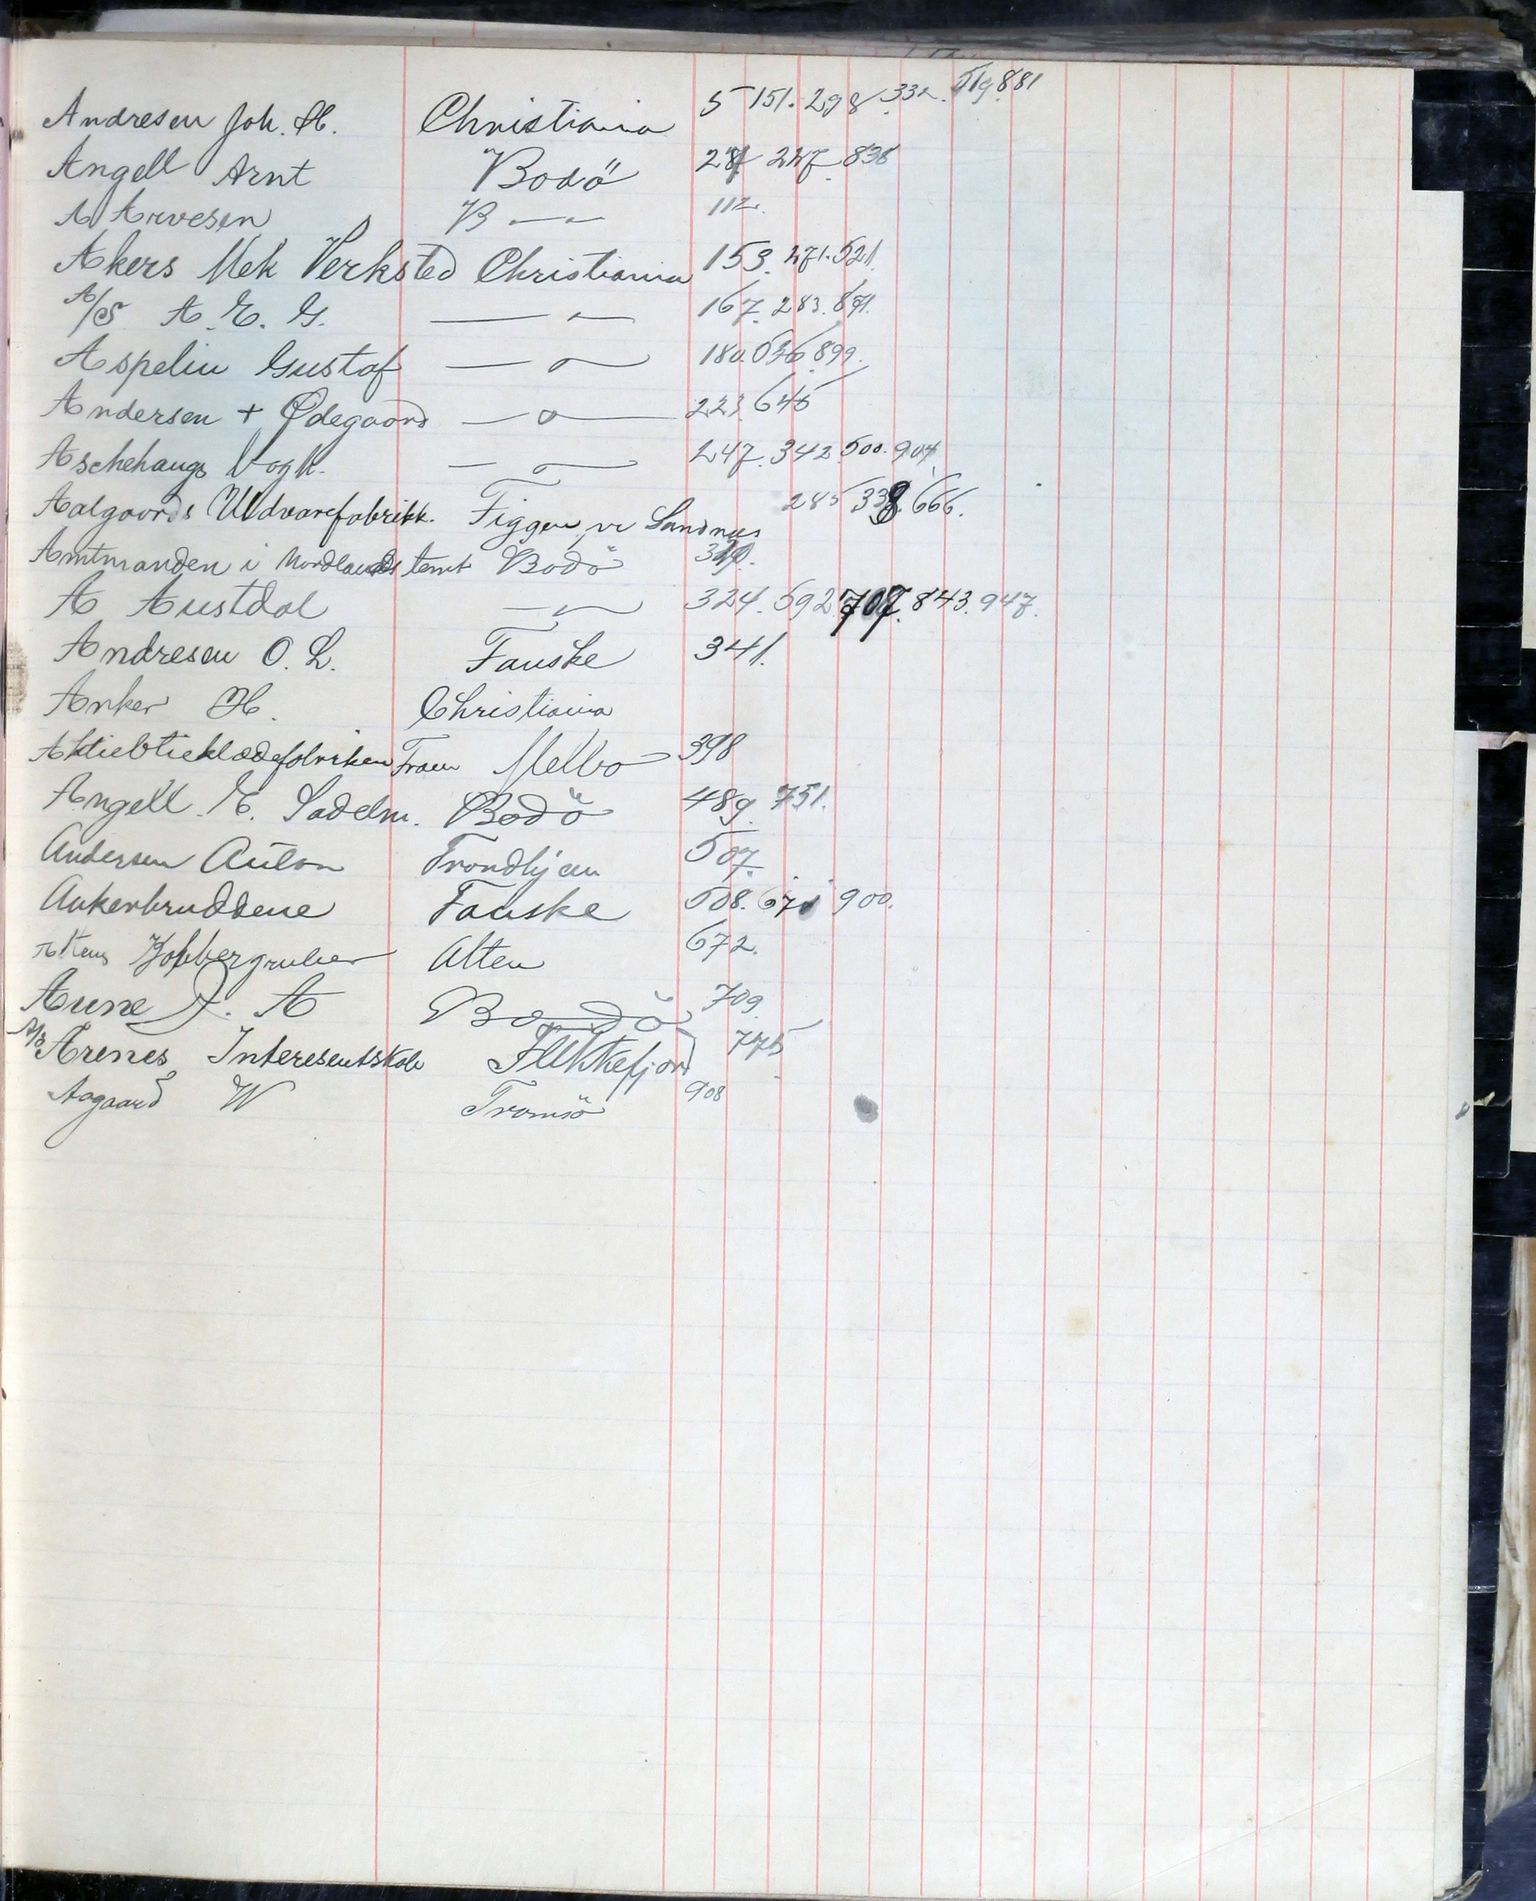 Andresen Joh. H. Christiania 5 151. 298. 332. 519. 881
Angell Arnt Bodö 247. 838
A Arvesen B — " — 112.
Akers Mek Verksted Christiania 153. 271. 521.
A/S A. E. G. — " — 167. 283. 891.
Aspelin Gustaf — " — 180. 899.
Andersen + Ødegaard — " — 223. 645
Aschehaugs — " — 247. 342. 500. 904.
Aalgaards Uldvarefabrikk. Figgen v. Sandnes 285 338. 666.
Amtmanden i Nordlands Bodö
A Austdal — " — 324. 592 707. 843. 947.
Andresen O. L. Fauske 341.
Anker H. Christiania
Fram Melbo 398
Angell E. Sadelm. Bodö 489. 751.
Andersen Anton Trondhjem 507.
Ankerbruddene Fauske 508. 671 900.
Altens Kobbergruber Alten 672.
Aune A Bodö 709
A/S Arenes Interesentskab Flekkefjord 775
Aagaard W Tromsö 908